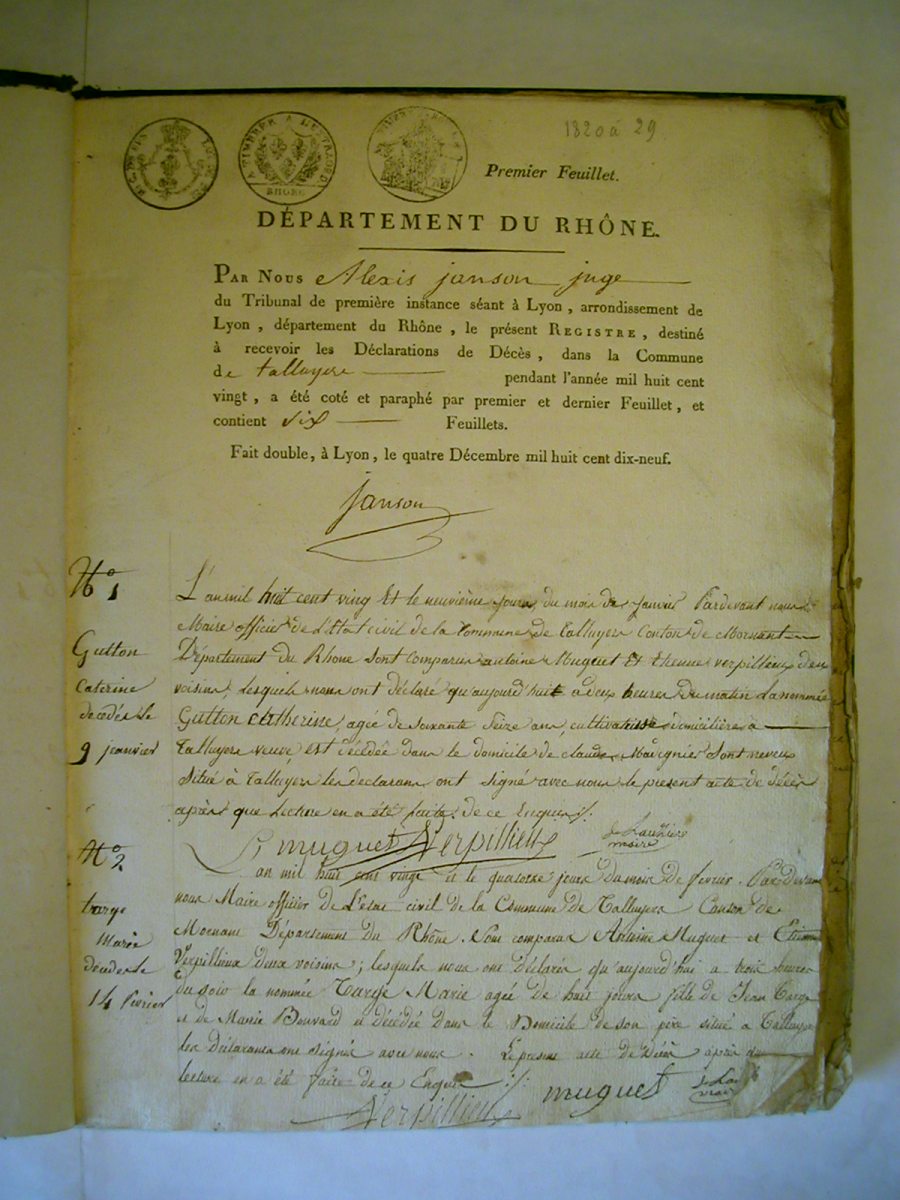 1820 à 29
A TIMBRER A L'EXTRAORD.
RHONE
Premier Feuillet.
DÉPARTEMENT DU RHÔNE.
PAR NOUS Alexis janson juge
du Tribunal de première instance séant à Lyon, arrondissement de
Lyon, département du Rhône, le présent REGISTRE, destiné
à recevoir les Déclarations de Décès, dans la Commune
de talluyers pendant l'année mil huit cent
vingt, a été coté et paraphé par premier et dernier Feuillet, et
contient six Feuillets.
Fait double, à Lyon, le quatre Décembre mil huit cent dix-neuf.
janson
No 1
Gutton
Caterine
décédés le
9 jeanvier
L'an mil huit cent ving Et le neuvième jours du mois de janvier Pardevant nous
Maire officier de L'Etat civil de la Commune de Talluyers Canton de Mornant
Département du Rhone sont comparus antoine Muguet Et Etienne verpillieux deux
voisins, lesquels nous ont déclaré qu'aujourd'huit à deux heures du matin La nommée
Gutton Catherine agée de soixante seize ans, cultivatrisse domicilière à
Talluyers veuve est décédée dans le domicile de claude Marignier sont neveux
situé à Talluyers les déclarans ont signé avec nous le présent acte de décès
après que Lecture en a été faite. de ce Enquis ./.
muguet Verpillieux
maire
No 2
targe
Marie
décédés le
14 février
L'an mil huit cent vingt et le quatorze jours du mois de fevrier. Par devant
nous Maire officier de L'etat civil de la Commune de Talluyers Canton de
Mornant Département du Rhône. Sont comparus Antoine Muguet et Etienne
Verpillieux deux voisins; lesquels nous ont déclarés qu'aujourd'hui a trois heures
du soir la nommée Targe Marie agée de huit jours fille de Jean Targe
et de Marie Bouvard et décédée dans le Domicile de son père situé a Talluyers
les déclarants ont signé avec nous. Le présent acte de décès après que
lecture en a été faite de ce Enquis ./.
Verpillieux muguet